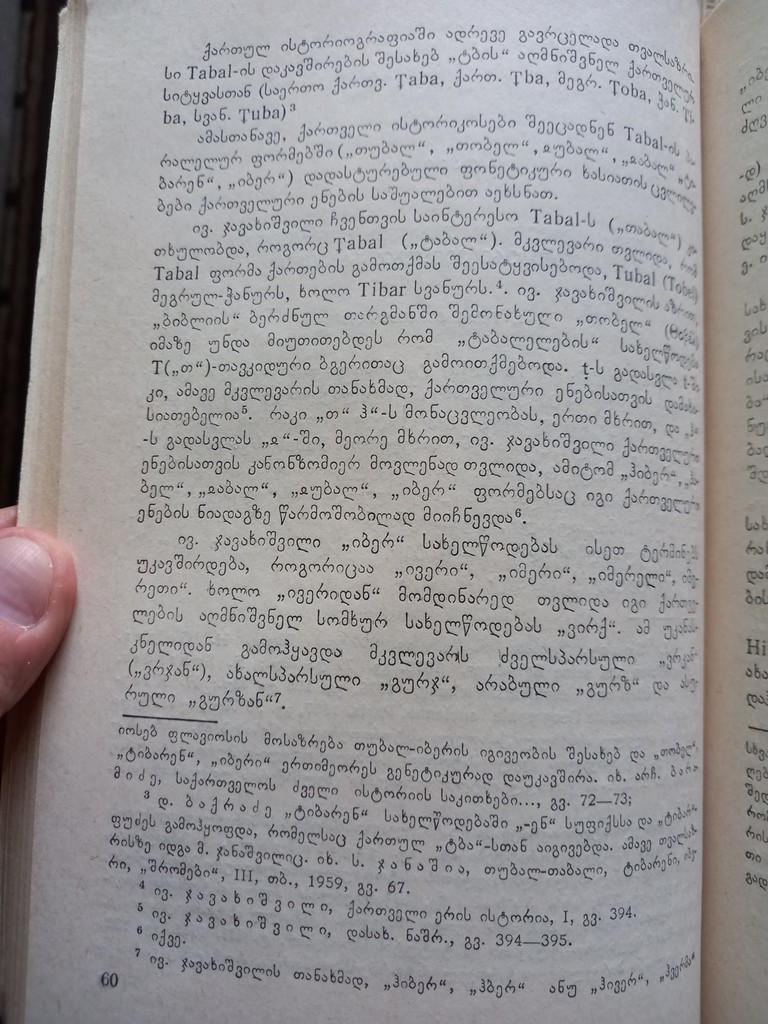 ქართულ ისტორიოგრაფიაში ადრევე გავრცელადა თვალსაზრი-
სი Tabal-ის დაკავშირების შესახებ „ტბის“ აღმნიშვნელ ქართველურ
სიტყვასთან (საერთო ქართვ. Ṭaba, ქართ. Ṭba, მეგრ. Ṭoba, ჭან.
ba, სვან. Ṭuba)³
ამასთანავე, ქართველი ისტორიკოსები შეეცადნენ Tabal-ის
რალელურ ფორმებში („თუბალ“, „თობელ“,
ბარენ“, „იბერ“) დადასტურებული ფონეტიკური ხასიათის ცვლილე-
ბები ქართველური ენების საშუალებით აეხსნათ.
ივ. ჯავახიშვილი ჩვენთვის საინტერესო Tabal-ს („თაბალ“)
თხულობდა, როგორც Ṭabal („ტაბალ“). მკვლევარი თვლიდა, რომ
Tabal ფორმა ქართების გამოთქმას შეესატყვისებოდა, Tubal (Tobel)
მეგრულ-ჭანურს, ხოლო Tibar სვანურს.⁴. ივ. ჯავახიშვილის აზრით,
„ბიბლიის“ ბერძნულ თარგმანში შემონახული „თობელ“
იმაზე უნდა მიუთითებდეს რომ „ტაბალელების“ სახელწოდება
T(„თ“)-თავკიდური ბგერითაც გამოითქმებოდა. ṭ-ს გადასვლა
კი, ამავე მკვლევარის თანახმად, ქართველური ენებისათვის დამახა-
სიათებელია⁵. რაკი „თ“ ჰ“-ს მონაცვლეობას, ერთი მხრით, და
-ს გადასვლას „ჲ“-ში, მეორე მხრით, ივ. ჯავახიშვილი ქართველური
ენებისათვის კანონზომიერ მოვლენად თვლიდა, ამიტომ „ჰიბერ“,
ბელ“, „ჲაბალ“, „ჲუბალ“, „იბერ“ ფორმებსაც იგი ქართველური
ენების ნიადაგზე წარმოშობილად მიიჩნევდა⁶.
ივ. ჯავახიშვილი „იბერ“ სახელწოდებას ისეთ ტერმინებს
უკავშირდება, როგორიცაა „ივერი“, „იმერი“, „იმერელი“, იმე-
რეთი“. ხოლო „ივერიდან“ მომდინარედ თვლიდა იგი ქართვე-
ლების აღმნიშვნელ სომხურ სახელწოდებას „ვირქ“. ამ უკანას-
კნელიდან გამოჰყავდა მკვლევარს ძველსპარსული „ვრკან“
(„ვრჯან“), ახალსპარსული „გურჯ“, არაბული „გურზ“ და ასუ-
რული „გურზან“⁷.
იოსებ ფლავიოსის მოსაზრება თუბალ-იბერის იგივეობის შესახებ და „თობელ“,
„ტიბარენ“, „იბერი“ ერთიმეორეს გენეტიკურად დაუკავშირა. იხ. არჩ. ბარა-
მიძე, საქართველოს ძველი ისტორიის საკითხები..., გვ. 72—73;
³ დ. ბაქრაძე „ტიბარენ“ სახელწოდებაში „-ენ“ სუფიქსსა და „ტიბარ“
ფუძეს გამოჰყოფდა, რომელსაც ქართულ „ტბა“-სთან აიგივებდა. ამავე თვალსაზ-
რისზე იდგა მ. ჯანაშვილიც. იხ. ს. ჯანაშია, თუბალ-თაბალი, ტიბარენი, იბე-
რი, „შრომები“, III, თბ., 1959, გვ. 67.
⁴ ივ. ჯავახიშვილი, ქართველი ერის ისტორია, I, გვ. 394.
⁵ ივ. ჯავახიშვილი, დასახ. ნაშრ., გვ. 394—395.
⁶ იქვე.
⁷ ივ. ჯავახიშვილის თანახმად, „ჰიბერ“, „ჰბერ“ ანუ „ჰივერ“,
60